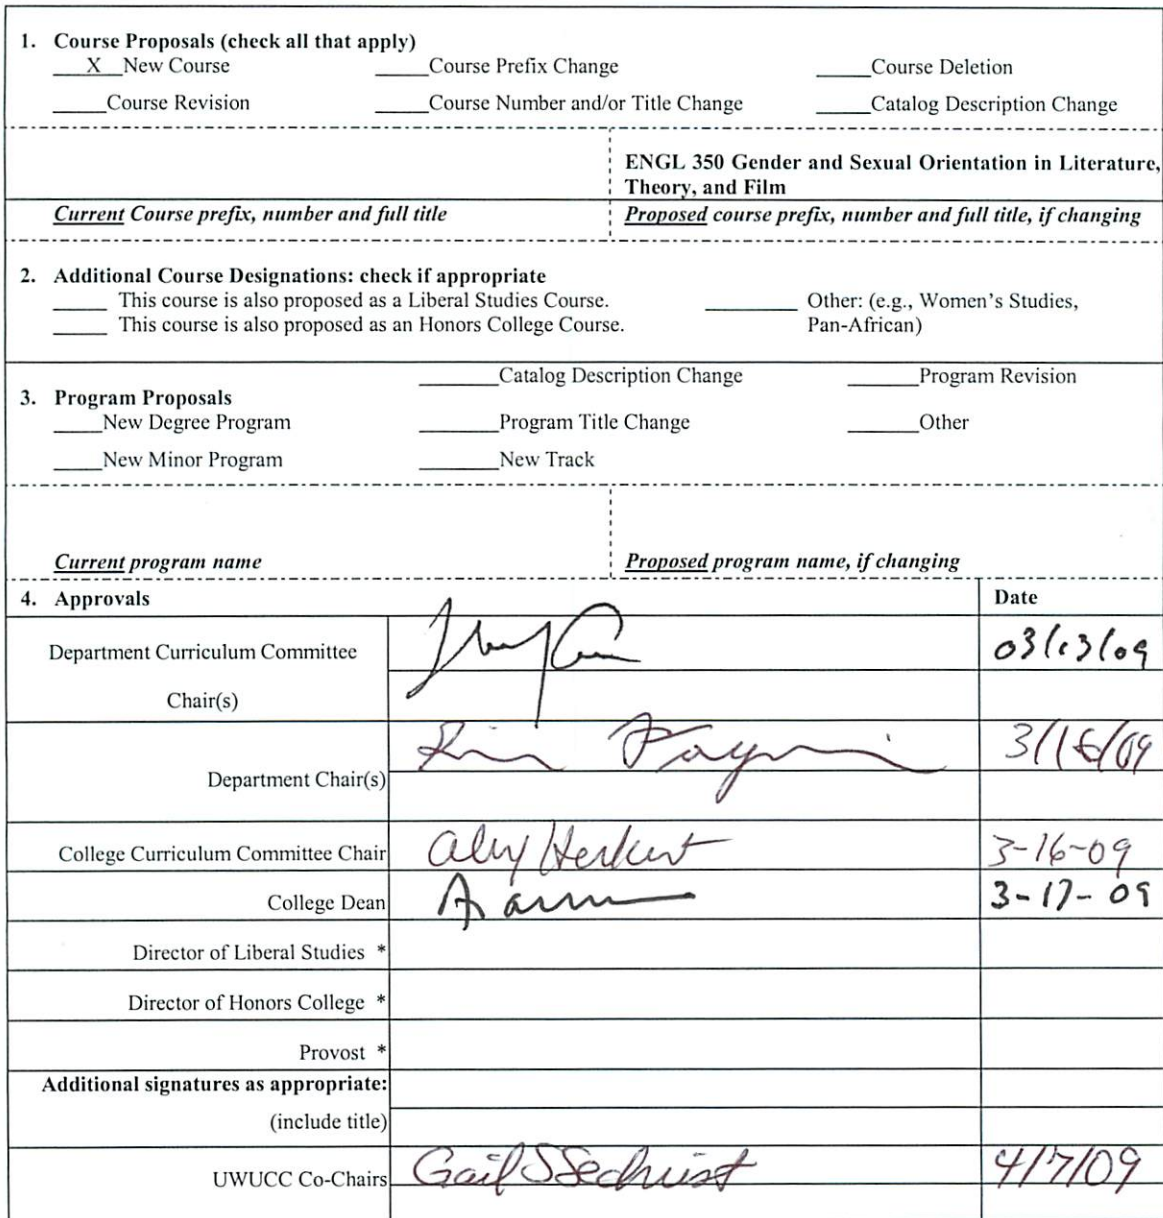 1. Course Proposals (check all that apply)
___X__New Course _____Course Prefix Change _____Course Deletion
_____Course Revision _____Course Number and/or Title Change _____Catalog Description Change
ENGL 350 Gender and Sexual Orientation in Literature,
Theory, and Film
Current Course prefix, number and full title Proposed course prefix, number and full title, if changing
2. Additional Course Designations: check if appropriate
_____ This course is also proposed as a Liberal Studies Course. ________ Other: (e.g., Women's Studies,
_____ This course is also proposed as an Honors College Course. Pan-African)
________Catalog Description Change _______Program Revision
3. Program Proposals
_____New Degree Program ________Program Title Change _______Other
_____New Minor Program ________New Track
Current program name Proposed program name, if changing
4. Approvals Date
Department Curriculum Committee 03/13/09
Chair(s)
Department Chair(s)
College Curriculum Committee Chair 3-16-09
College Dean 3-17-09
Director of Liberal Studies *
Director of Honors College *
Provost *
Additional signatures as appropriate:
(include title)
UWUCC Co-Chairs Gail S Sechrist 4/7/09